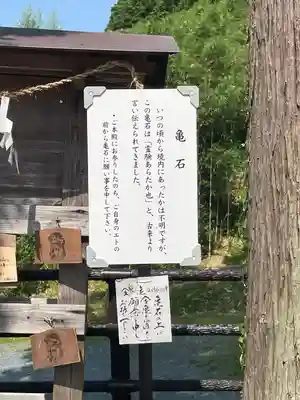 亀石
いつの頃から境内にあったかは不明ですが、
この亀石は「霊験あらたか也」と、古来より
言い伝えられてきました。
・ご本殿にお参りしたのち、ご自身のエトの
前から亀石に願い事を申して下さい。
亀石の上に